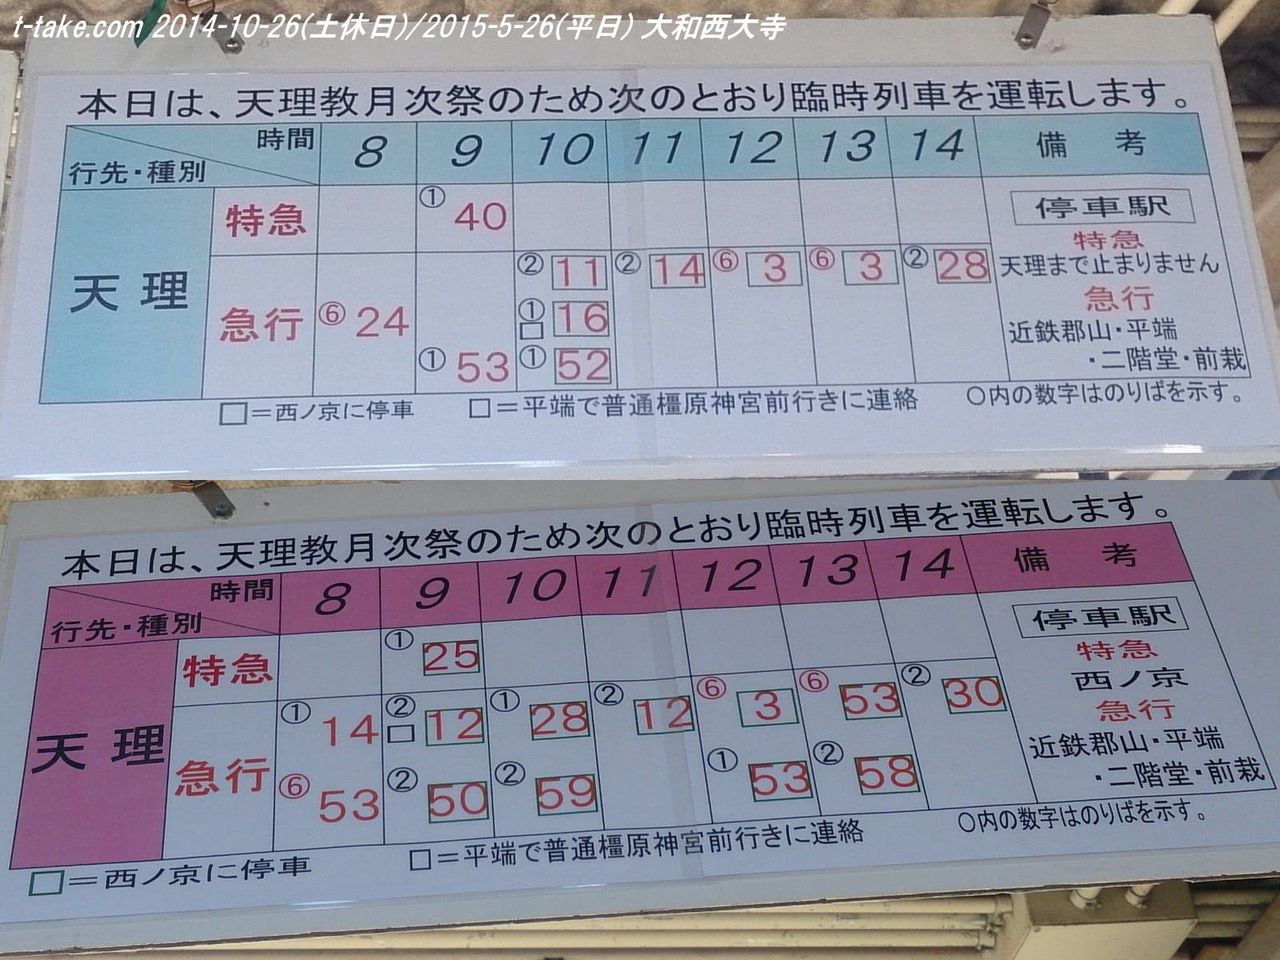 t-take.com 2014-10-26(土休日)/2015-5-26(平日) 大和西大寺
本日は、天理教月次祭のため次のとおり臨時列車を運転します。
時間 8 9 10 11 12 13 14 備 考
行先・種別
天 理
特急 ①40
急行 ⑥24 ①53
②11 ②14 ⑥3 ⑥3 ②28
①□16
①52
停車駅
特急
天理まで止まりません
急行
近鉄郡山・平端
・二階堂・前栽
□=西ノ京に停車 □=平端で普通橿原神宮前行きに連絡 ○内の数字はのりばを示す。
本日は、天理教月次祭のため次のとおり臨時列車を運転します。
時間 8 9 10 11 12 13 14 備 考
行先・種別
天 理
特急 ①25
急行 ①14 ②□12 ①28 ②12 ⑥3 ⑥53 ②30
⑥53 ②50 ②59 ①53 ②58
停車駅
特急
西ノ京
急行
近鉄郡山・平端
・二階堂・前栽
□=西ノ京に停車 □=平端で普通橿原神宮前行きに連絡 ○内の数字はのりばを示す。